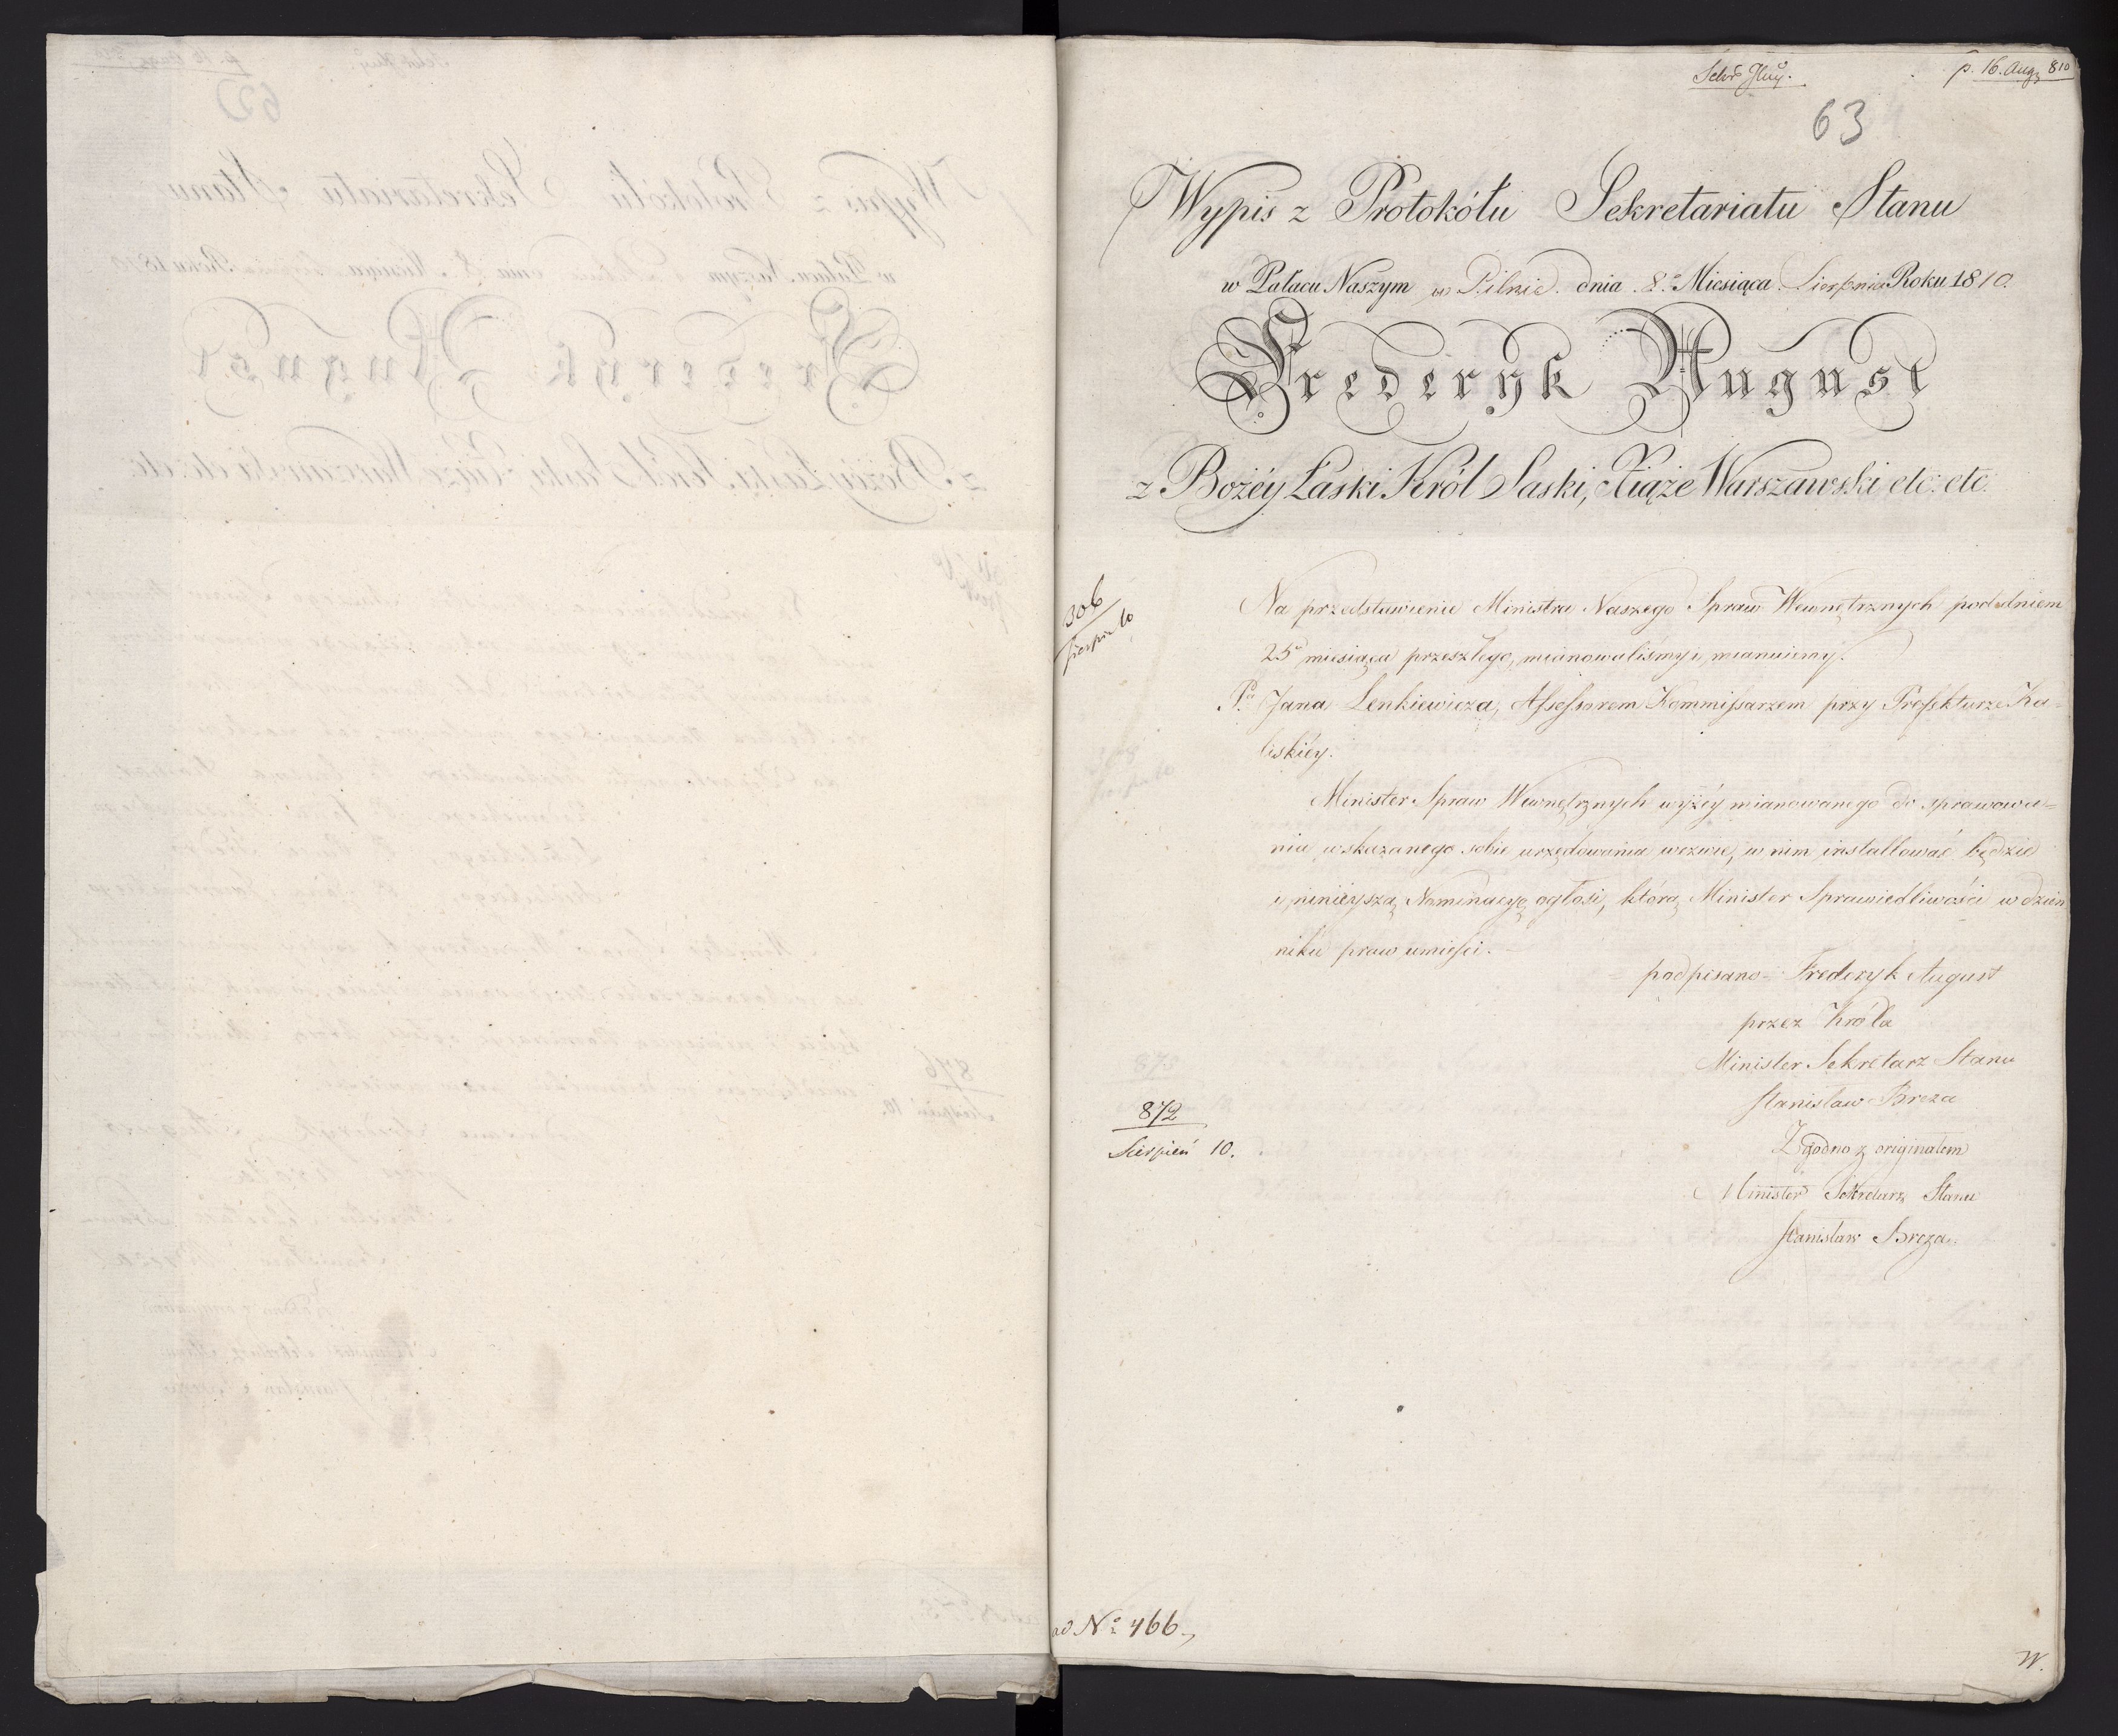 p. 16. Aug. 810
63
Wypis z Protokółu Sekretariatu Stanu
w Pałacu Naszym w Pilnic. dnia 8o. Miesiąca Sierpnia Roku 1810.
Frederyk August
z Bożéy Łaski Król Saski, Xiąże Warszawski etc: etc:
306
Sierpnia 10
Na przedstawienie Ministra Naszego Spraw Wewnętrznych pod dniem
25o miesiąca przeszłego, mianowaliśmy i mianuiemy.
Pa. Jana Lenkiewicza, Assessorem Kommissarzem przy Prefekturze Ka=
liskiéy.
Minister Spraw Wewnętrznych wyżéy mianowanego do sprawowa=
nia wskazanego sobie urzędowania wezwie, w nim installować będzie
i ninieyszą Nominacyę ogłosi, którą Minister Sprawiedliwości w dzien
niku praw umieści. –
podpisano – Frederyk August
przez Króla
Minister Sekretarz Stanu
Stanisław Breza
872
Sierpień 10.
Zgodno z originałem
Minister Sekretarz Stanu
Stanisław Breza.
ad No: 466.
W.